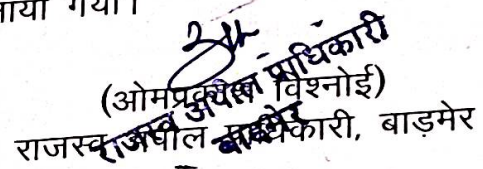 गया।
(ओमप्रकाश विश्नोई)
राजस्व अपील प्राधिकारी, बाड़मेर
राजस्व अपील प्राधिकारी
बाड़मेर